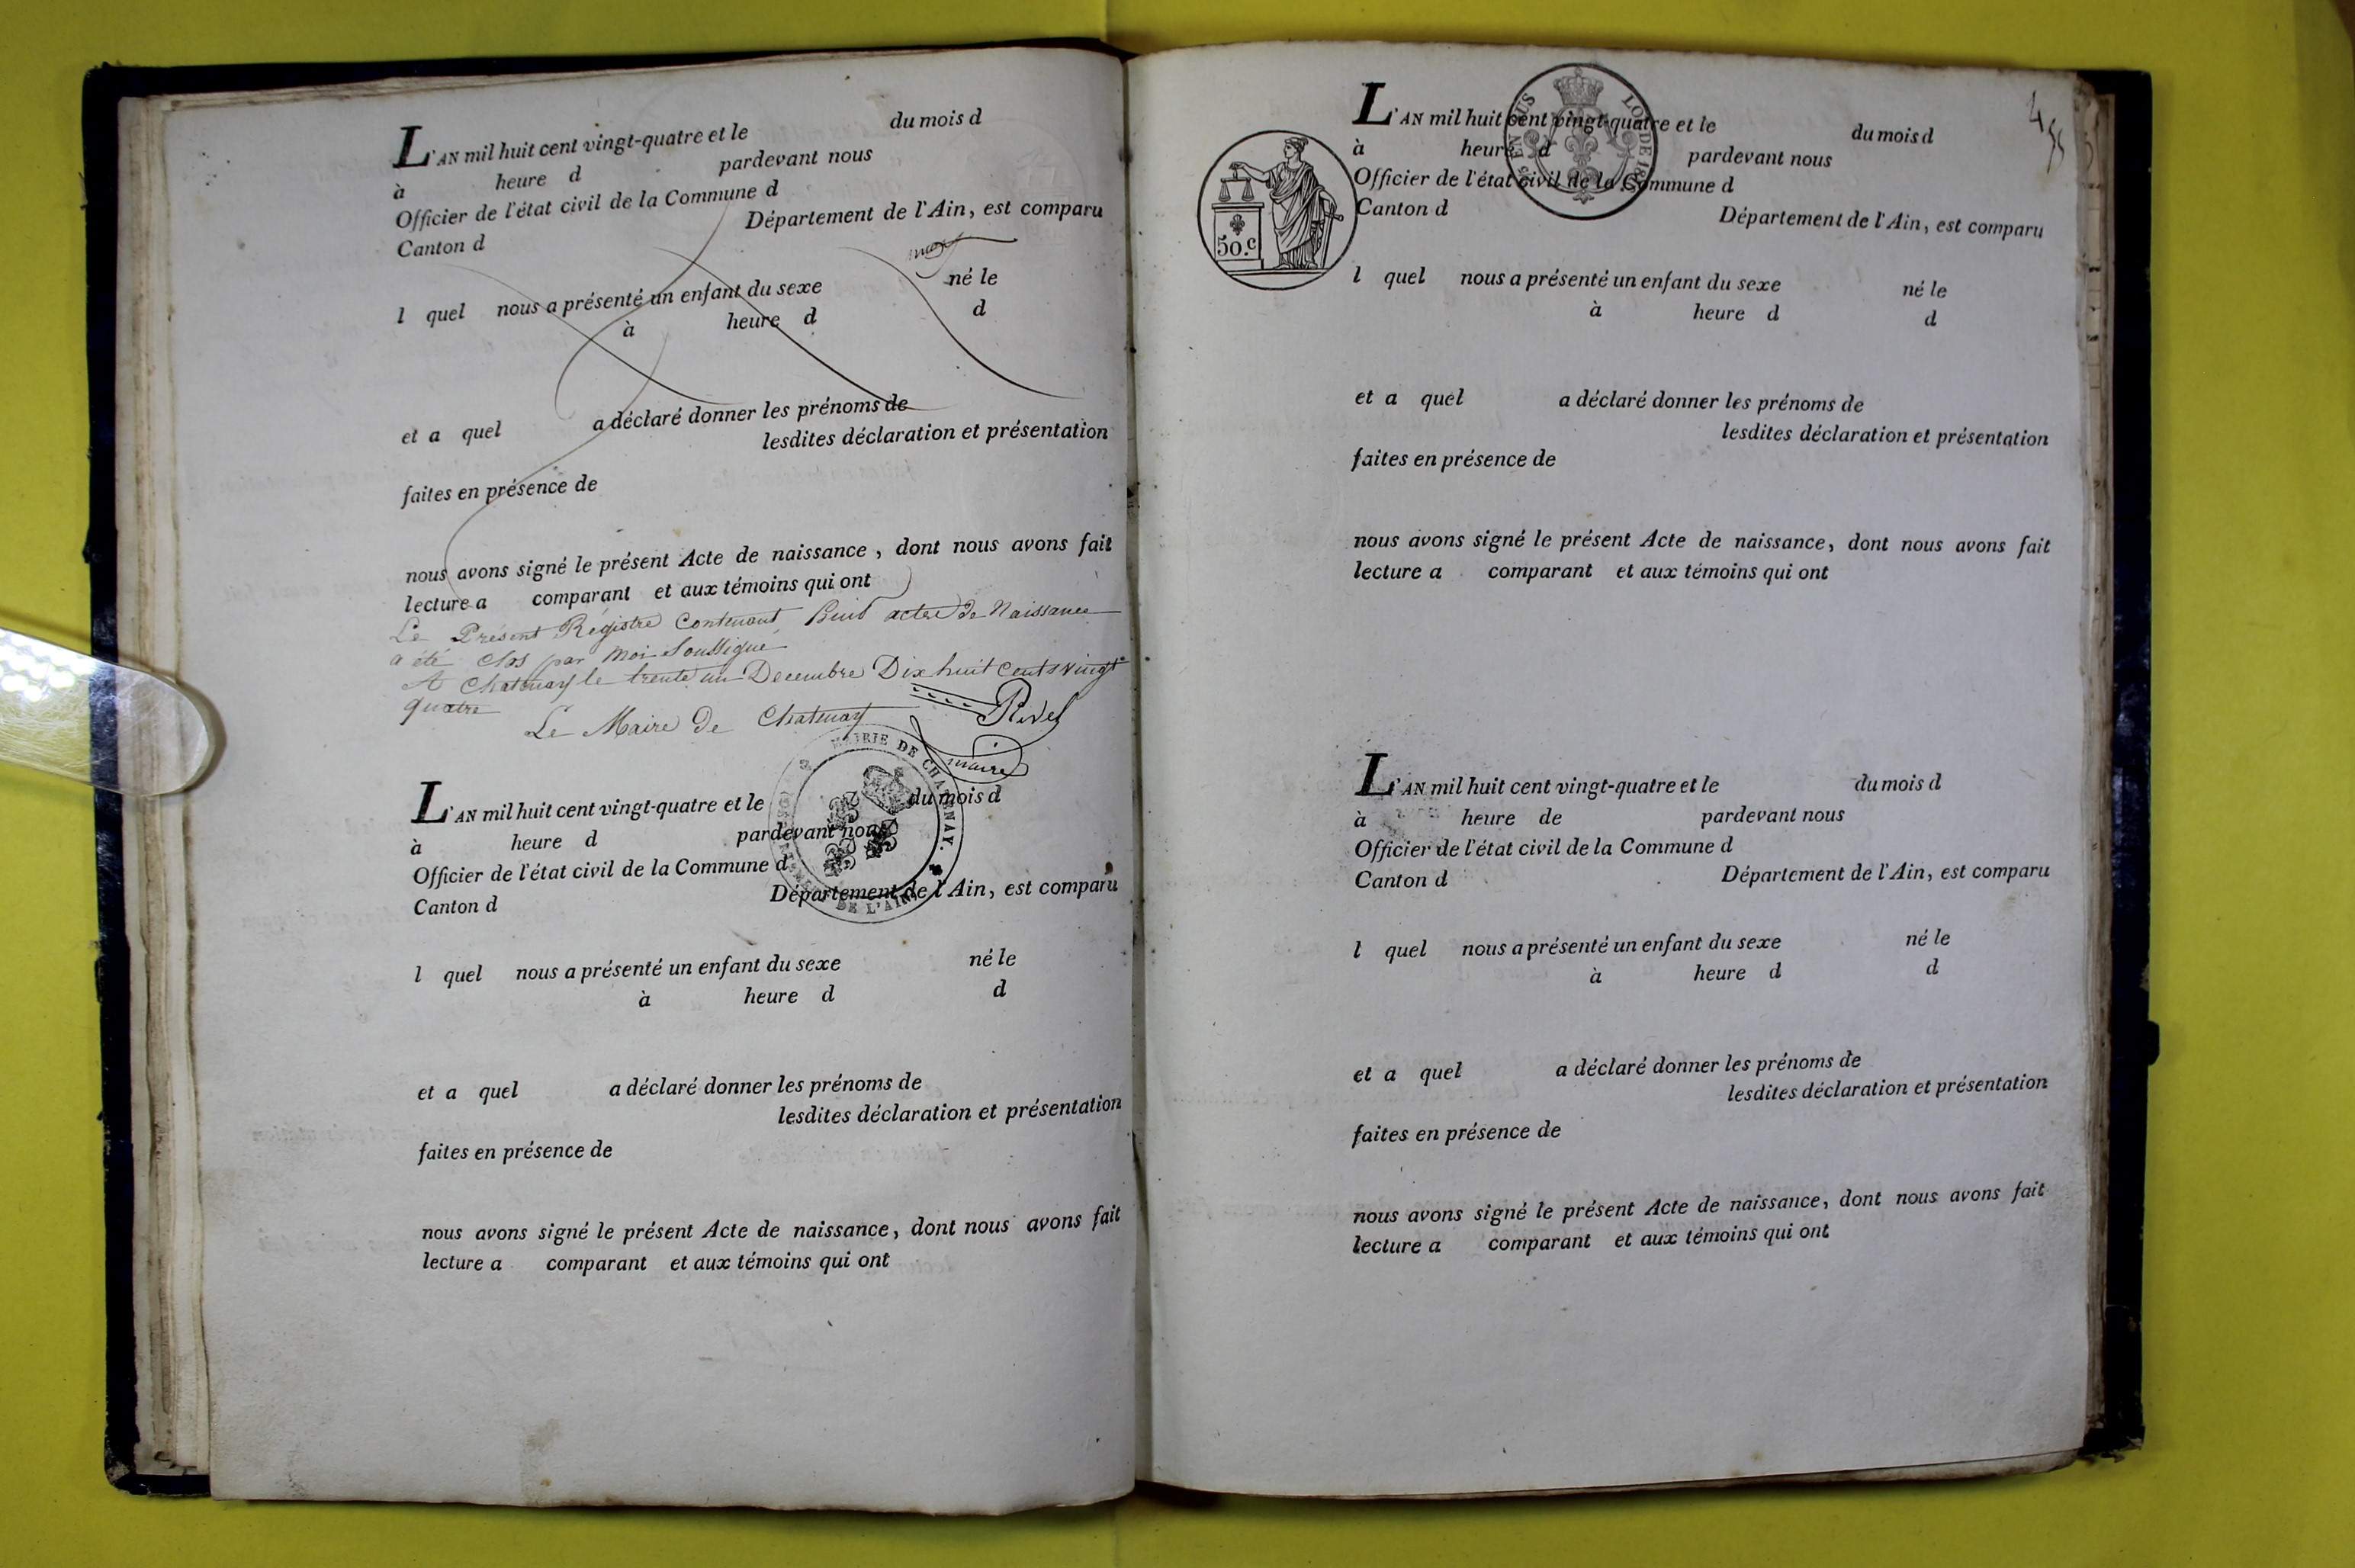 L'AN mil huit cent vingt-quatre et le du mois d
à heure d pardevant nous
Officier de l'état civil de la Commune d
Canton d Département de l'Ain, est comparu
l quel nous a présenté un enfant du sexe né le
à heure d d
et a quel a déclaré donner les prénoms de
lesdites déclaration et présentation
faites en présence de
nous avons signé le présent Acte de naissance, dont nous avons fait
lecture a comparant et aux témoins qui ont
Le Présent Régistre Contenant huit actes de Naissance
a été Clos par moi Soussigné
A Chatenay le trente un Decembre Dix huit Cents vingt
quatre
Le Maire De Chatenay Rivel
maire
MAIRIE DE CHATENAY.
DE L'AIN
L'AN mil huit cent vingt-quatre et le du mois d
à heure d pardevant nous
Officier de l'état civil de la Commune d
Canton d Département de l'Ain, est comparu
l quel nous a présenté un enfant du sexe né le
à heure d d
et a quel a déclaré donner les prénoms de
lesdites déclaration et présentation
faites en présence de
nous avons signé le présent Acte de naissance, dont nous avons fait
lecture a comparant et aux témoins qui ont
50.c
L'AN mil huit cent vingt-quatre et le du mois d
à heure d pardevant nous
Officier de l'état civil de la Commune d
Canton d Département de l'Ain, est comparu
l quel nous a présenté un enfant du sexe né le
à heure d d
et a quel a déclaré donner les prénoms de
lesdites déclaration et présentation
faites en présence de
nous avons signé le présent Acte de naissance, dont nous avons fait
lecture a comparant et aux témoins qui ont
L'AN mil huit cent vingt-quatre et le du mois d
à heure de pardevant nous
Officier de l'état civil de la Commune d
Canton d Département de l'Ain, est comparu
l quel nous a présenté un enfant du sexe né le
à heure d d
et a quel a déclaré donner les prénoms de
lesdites déclaration et présentation
faites en présence de
nous avons signé le présent Acte de naissance, dont nous avons fait
lecture a comparant et aux témoins qui ont